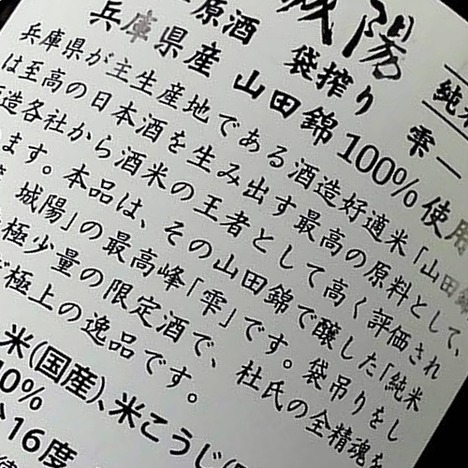 城陽
純米
原酒 袋搾り 雫
兵庫県産 山田錦100%使用
兵庫県が主生産地である酒造好適米「山田錦
は至高の日本酒を生み出す最高の原料として、
造各社から酒米の王者として高く評価され
ます。本品は、その山田錦で醸した「純米
城陽」の最高峰「雫」です。袋吊りをし
極少量の限定酒で、杜氏の全精魂を
極上の逸品です。
米(国産)、米こうじ(
0%
16度